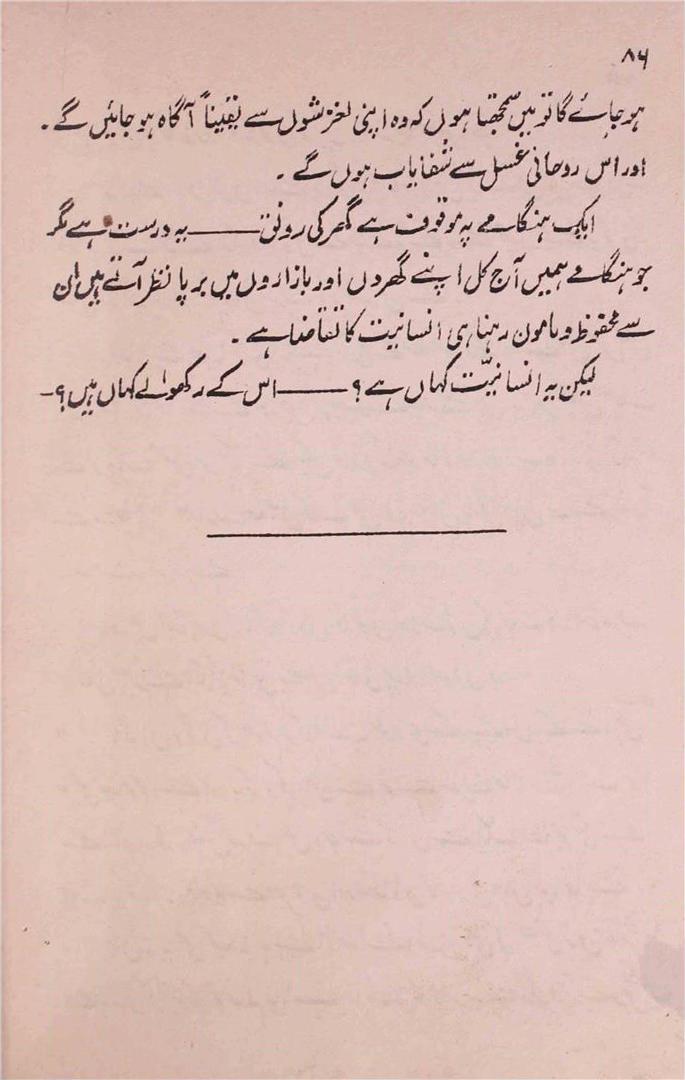 ۸۶
ہو جائے گا تو میں سمجھتا ہوں کہ وہ اپنی لغزشوں سے یقیناً آگاہ ہو جائیں گے۔
اور اس روحانی غسل سے شفایاب ہوں گے۔
ایک ہنگامے پہ موقوف ہے گھر کی رونق ——— یہ درست ہے مگر
جو ہنگامے ہمیں آج کل اپنے گھروں اور بازاروں میں برپا نظر آتے ہیں ان
سے محفوظ و مامون رہنا ہی انسانیت کا تقاضا ہے۔
لیکن یہ انسانیّت کہاں ہے؟ ——— اس کے رکھوالے کہاں ہیں؟-